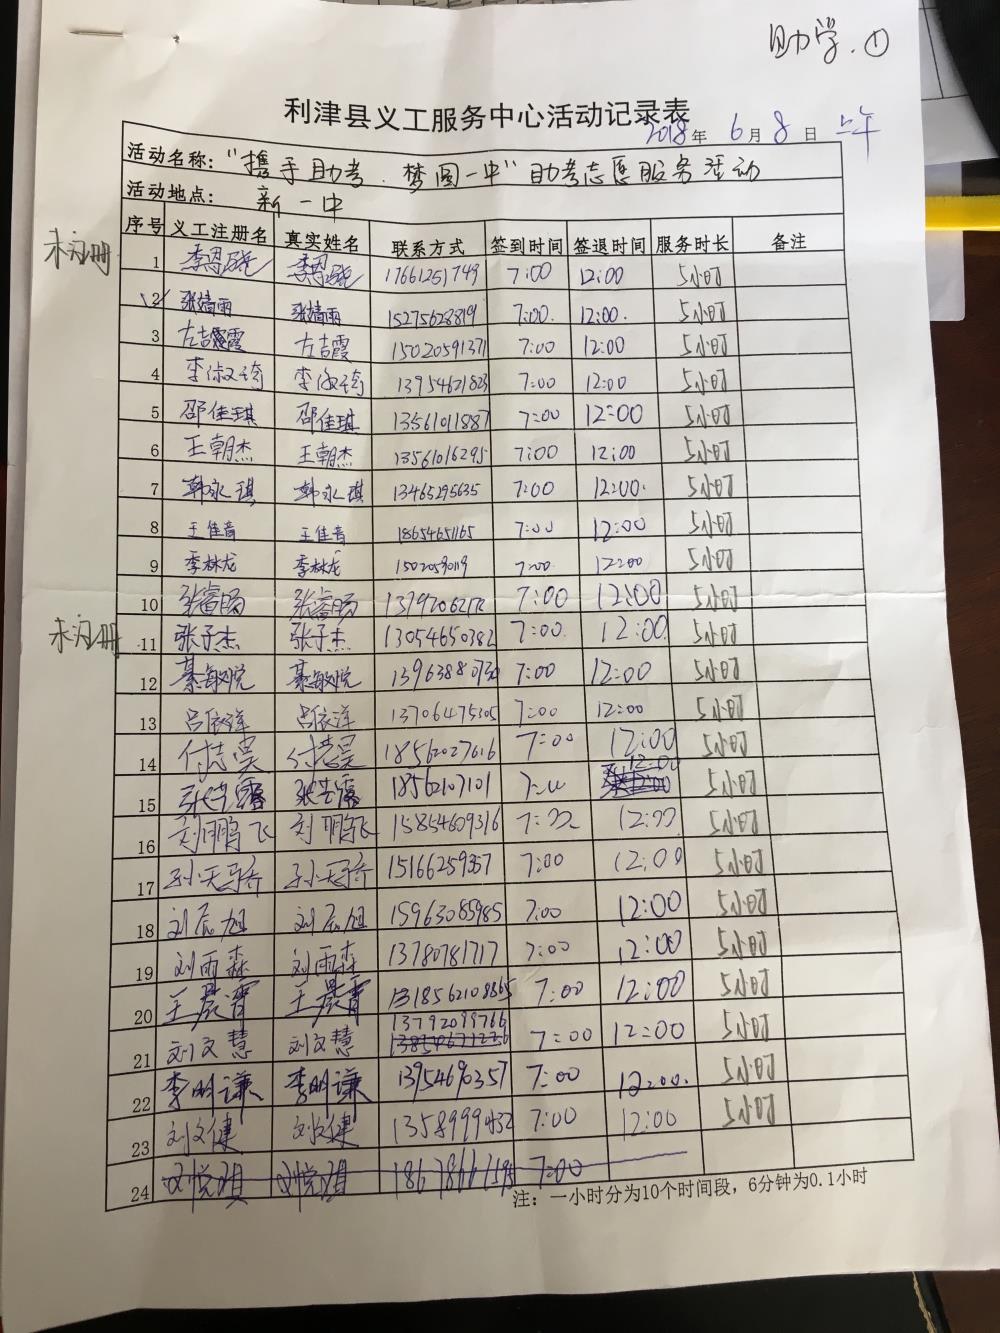 助学.①
利津县义工服务中心活动记录表
2018年 6月8日 上午
活动名称："携手助考.梦圆一中"助考志愿服务活动
活动地点： 新一中
序号 义工注册名 真实姓名 联系方式 签到时间 签退时间 服务时长 备注
未注册 1 17661251749 7:00 12:00 5小时
2 张婧雨 张婧雨 15275628819 7:00. 12:00. 5小时
3 左吉霞 左吉霞 15020591371 7:00 12:00 5小时
4 13954621823 7:00 12:00 5小时
5 邵佳琪 邵佳琪 13561011887 7:00 12:00 5小时
6 王朝杰 王朝杰 13561016295 7:00 12:00 5小时
7 韩永琪 韩永琪 13465295635 7:00 12:00. 5小时
8 王佳音 王佳音 18654651165 7:00 12:00 5小时
9 李林龙 李林龙 15020590119 7:00 12:00 5小时
10 张睿旸 张睿旸 7:00 12:00 5小时
未注册 11 张子杰 张子杰 13054650382 7:00. 12:00 5小时
12 綦敏悦 綦敏悦 13963880730 7:00 12:00 5小时
13 吕依洋 吕依洋 13706475305 7:00 12:00 5小时
14 付志昊 付志昊 18562027616 7:00 12:00 5小时
15 18562107101 7:00 12:00 5小时
16 刘鹏飞 刘鹏飞 15854609316 7:00 12:00 5小时
17 孙天骄 孙天骄 15166259357 7:00 12:00 5小时
18 刘辰旭 刘辰旭 15963085985 7:00 12:00 5小时
19 刘雨森 刘雨森 13780781717 7:00 12:00 5小时
20 王晨霄 王晨霄 1318562108865 7:00 12:00 5小时
21 刘文慧 刘文慧 13792099766 7:00 12:00 5小时
22 李明谦 李明谦 13954690357 7:00 12:00. 5小时
23 刘文健 刘文健 13589994932 7:00 12:00 5小时
24 7:00
注：一小时分为10个时间段，6分钟为0.1小时